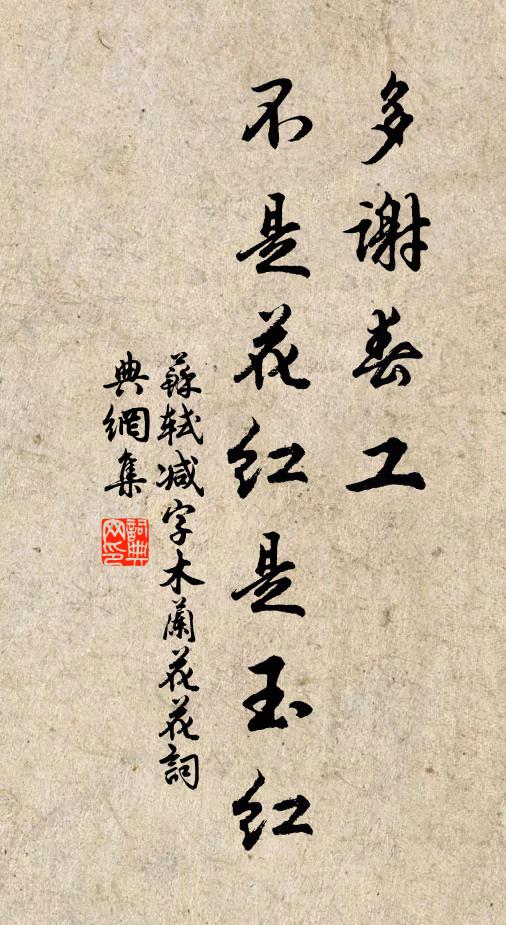 多謝春工
不是花紅是玉紅
蘇軾減字木蘭花花詞
典網集
詞典網印